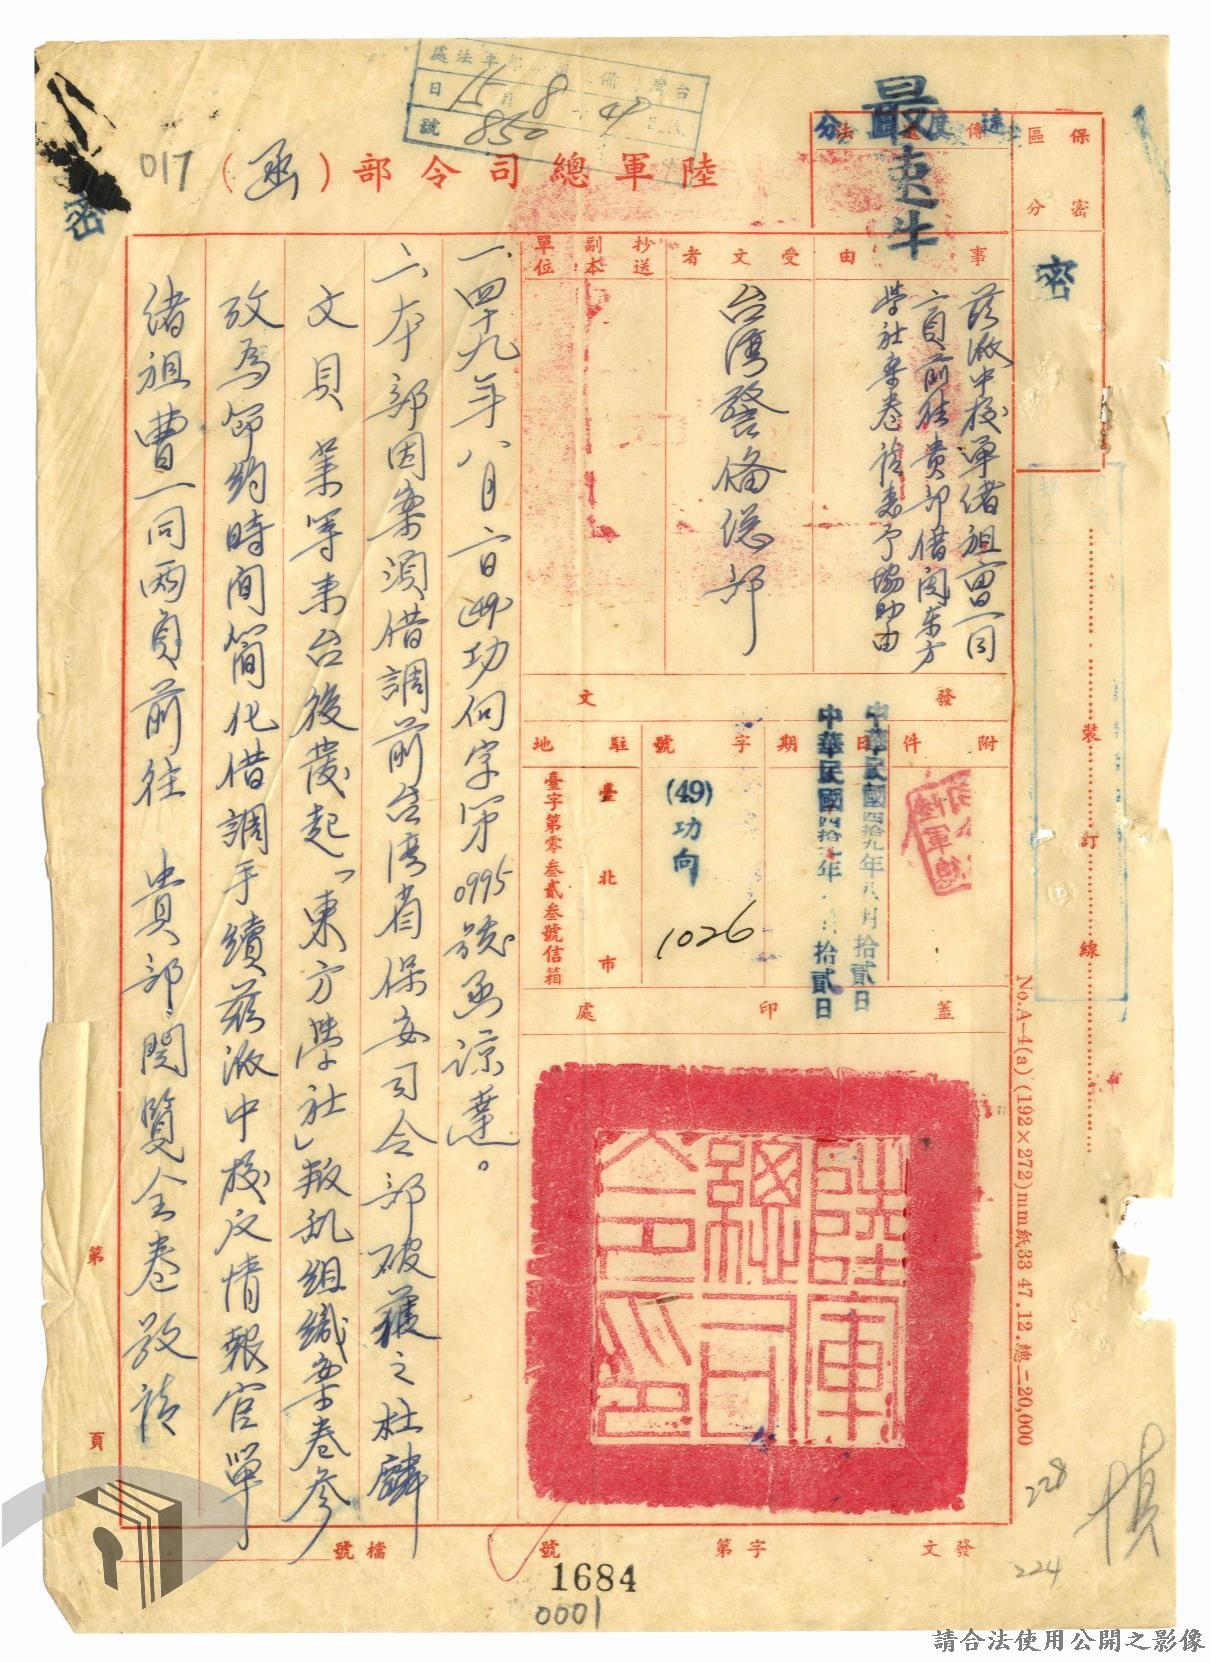 最速件
陸軍總司令部（函）
017
密
台灣警備總部軍法處
49 8 15日
850號
保密區分
密
傳遞速度
事由
茲派中校單緒祖曹一同
二員前往貴部借閱東方
學社案卷請惠予協助由
受文者
台灣警備總部
抄送副本單位
發文
附件
日期
中華民國四拾九年八月拾貳日
中華民國四拾九年 月拾貳日
字號
(49)功向
1026
駐地
臺北市
臺字第零叁貳叁號信箱
蓋印處
陸軍總司令印
一、四十九年八月二日(49)功向字第0995號函諒達。
二、本部因案須借調前台灣省保安司令部破獲之杜麟
文貝葉等來台後發起「東方學社」叛亂組織案卷參
攷為節約時間簡化借調手續茲派中校反情報官單
緒祖曹一同兩員前往 貴部閱覽全卷敬請
第 頁
裝訂線
No.A-4(a)(192×272)mm紙33 47.12.總二20,000
228
224
發文 字第 號
檔號
1684
0001
請合法使用公開之影像